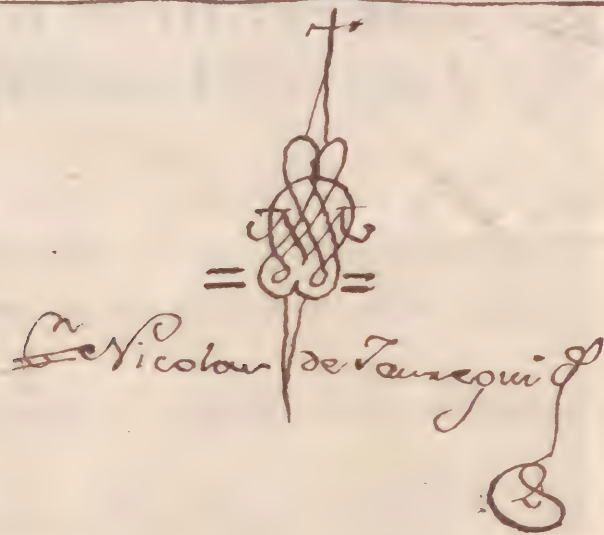 Nicolau de Jauregui